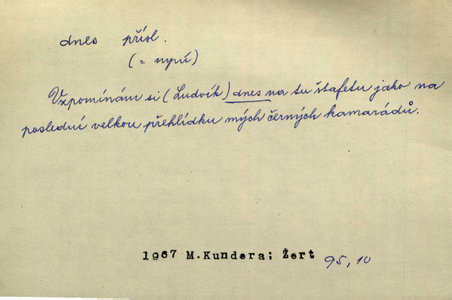 dnes přísl.
(= nyní)
Vzpomínám si (Ludvík) dnes na tu štafetu jako na
poslední velkou přehlídku mých černých kamarádů.
1967 M.Kundera; Žert 95,10